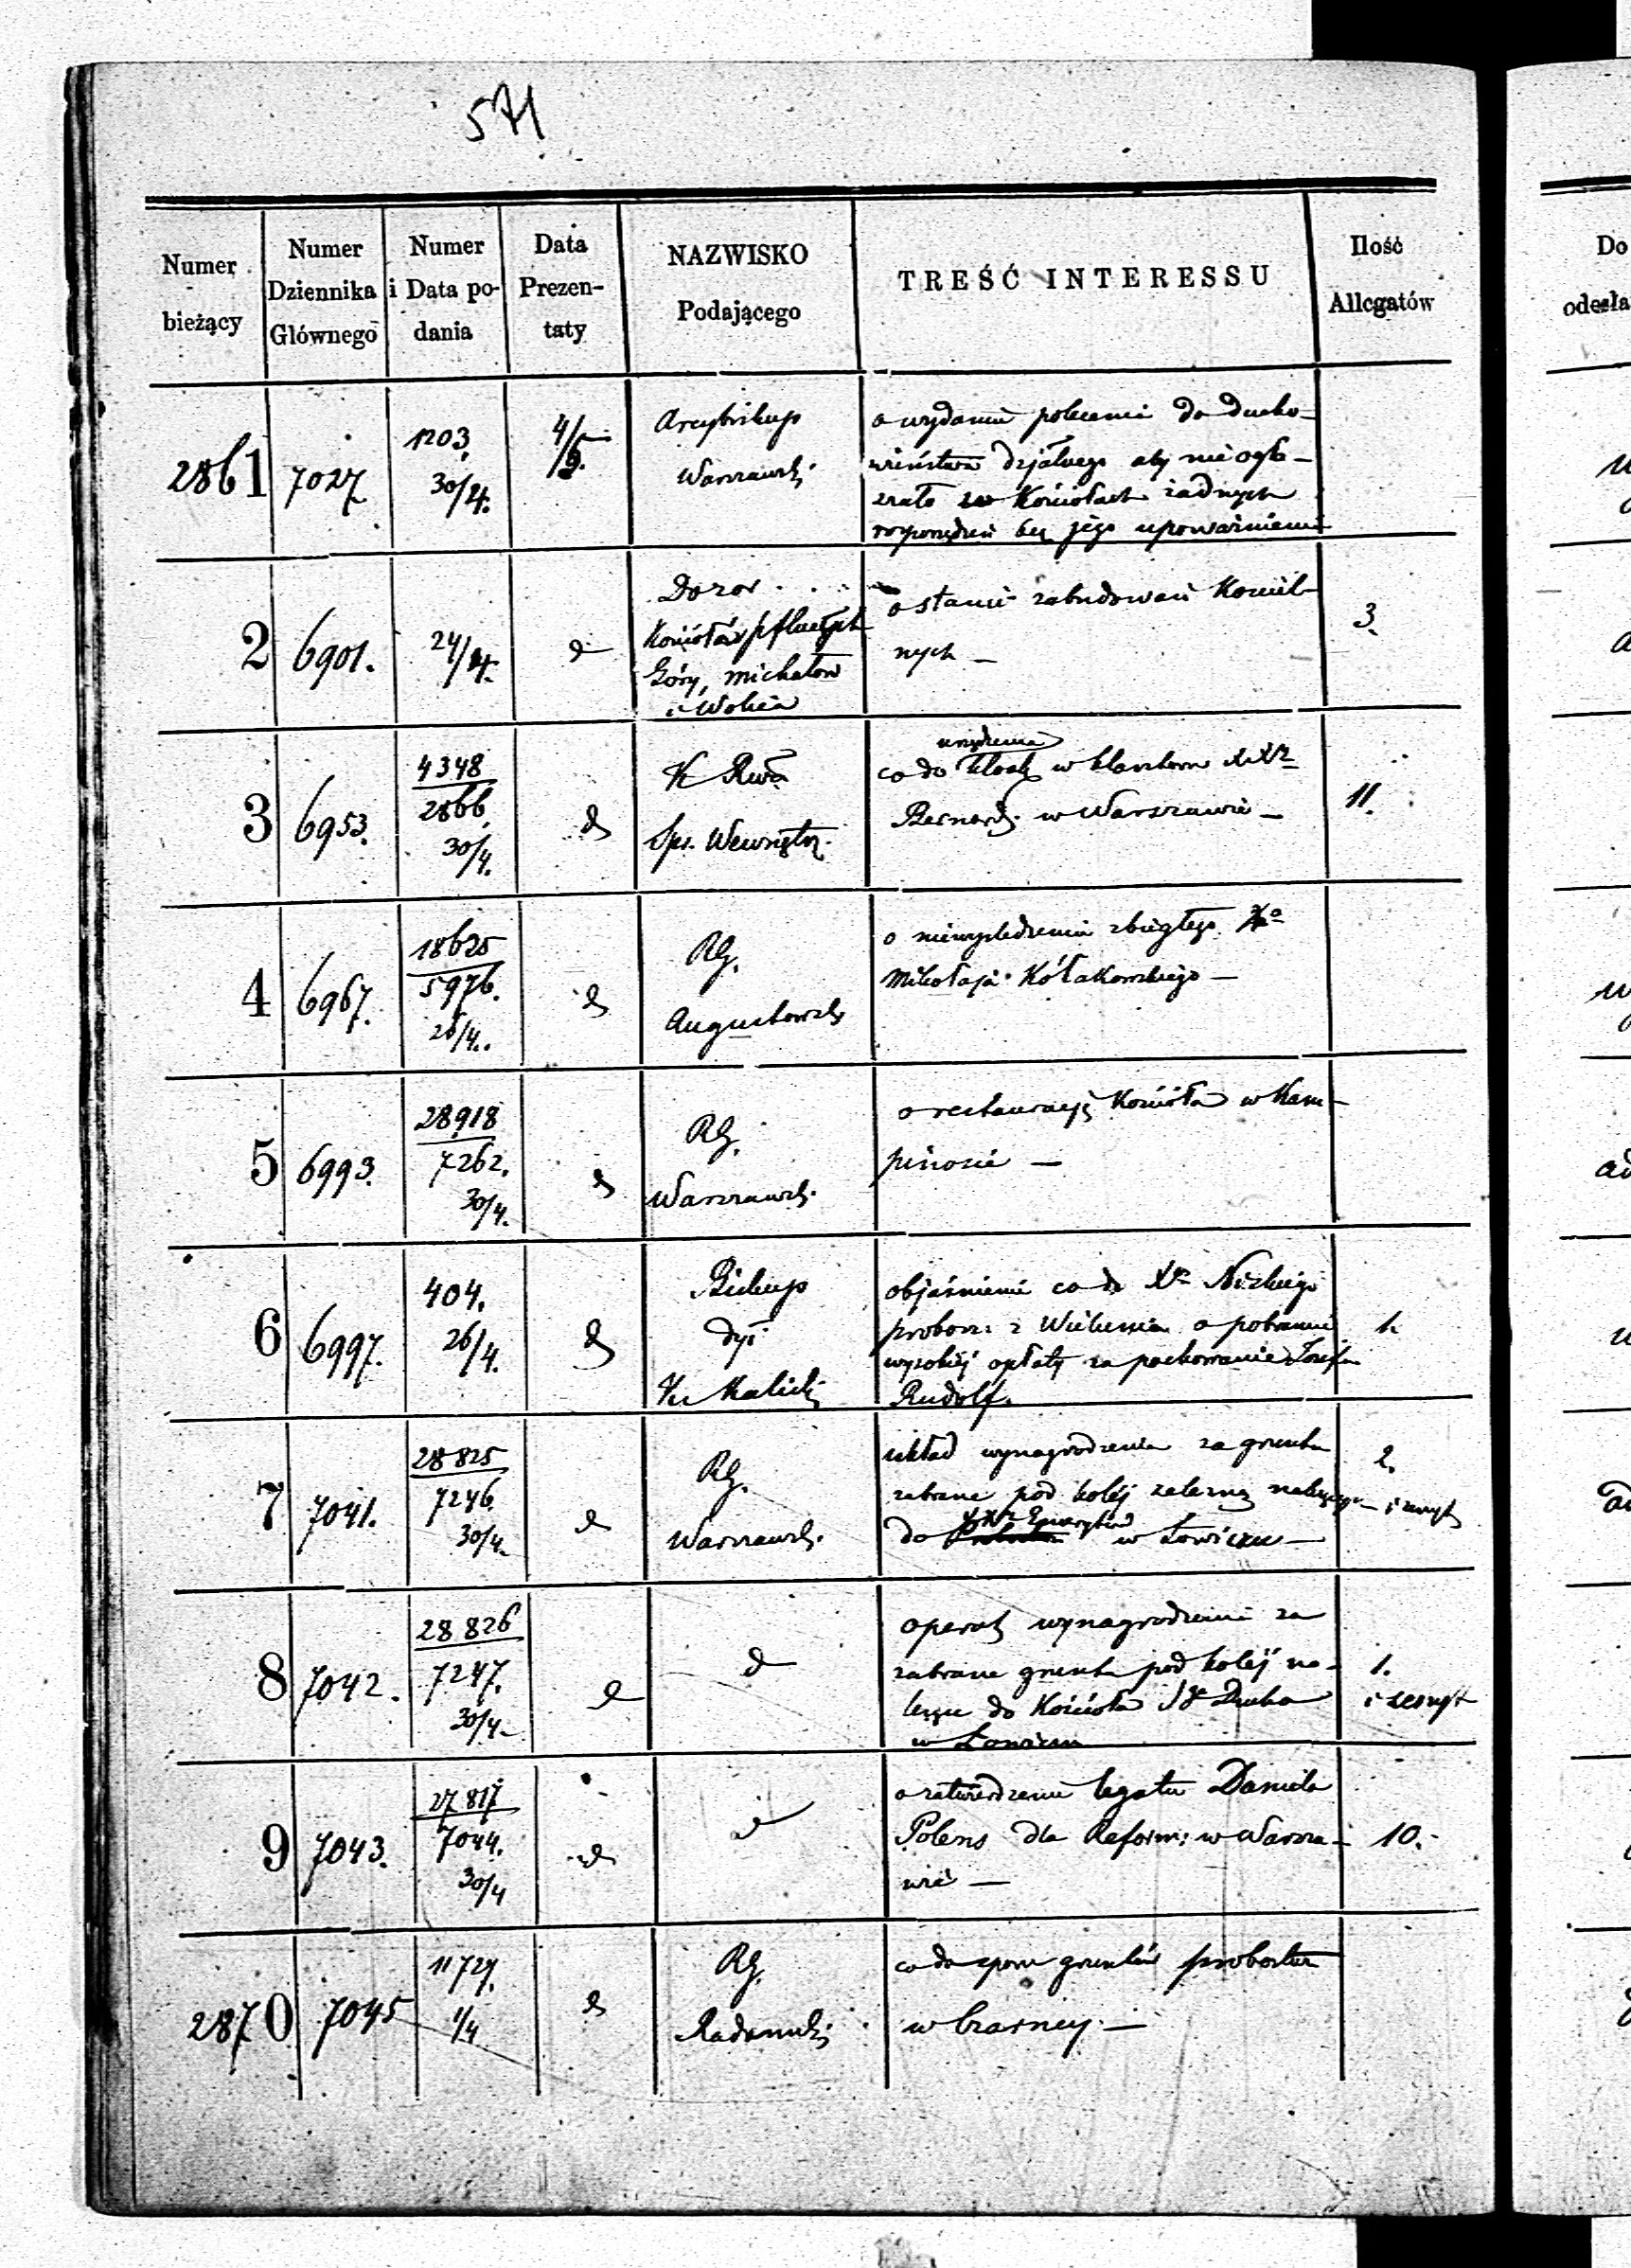 571
Numer bieżący
Numer Dziennika Głównego
Numer i Data podania
Data Prezentaty
NAZWISKO Podającego
TREŚĆ INTERESSU
Ilość Allegatów
Do odesła
2861
7027
1203
30/4.
4/5.
Arcybiskup
Warszawsk.
o wydanie polecenia do ducho-
wieństwa aby nie ogła-
szało w Kościołach żadnych
rozporządzeń bez jego upoważnienia
2
6901.
24/4.
d
Dozor
Kościołów
Góry, Michałów
i Wolica
o stanie zabudowań Kościel-
nych —
3.
3
6953.
4348
2866
30/4.
d
K Rwa
Spr. Wewnętrz.
urządzenia
co do kloak w klasztorze XX
Bernard. w Warszawie —
11.
4
6967.
18625
5976.
26/4.
d
RG.
Augustowsk
o niewyśledzeniu zbiegłego Xa
Mikołaja Kołakowskiego —
5
6993.
28918
7262.
30/4.
d
RG.
Warszawsk.
o restauracyę Kościoła w Kam-
pinosie —
6
6997.
404.
26/4.
d
Biskup
Dyi
Ku Kalisk
objaśnienie co do Xa Nickiego
probosz: z Wielunia o pobranie
wysokiej opłaty za pochowanie Józefa
Rudolf.
1.
7
7041.
28825
7246
30/4.
d
RG.
Warszawsk.
układ wynagrodzenia za grunta
zabrane pod kolej żelazną należące
XX Emerytów
do w Łowiczu —
2.
i zeszyt
8
7042.
28826
7247.
30/4.
d
d
operat wynagrodzenia za
zabrane grunta pod kolej na-
leżące do Kościoła Sgo Ducha
w Łowiczu
1.
i zeszyt
9
7043.
27817
7044.
30/4
d
d
o zatwierdzenie legatu Daniela
Polens dla Reform: w Warsza-
wie —
10.
2870
7045
11727.
1/4
d
RG.
Radomsk:
co do sporu gruntów probostwa
w Czarncy. —